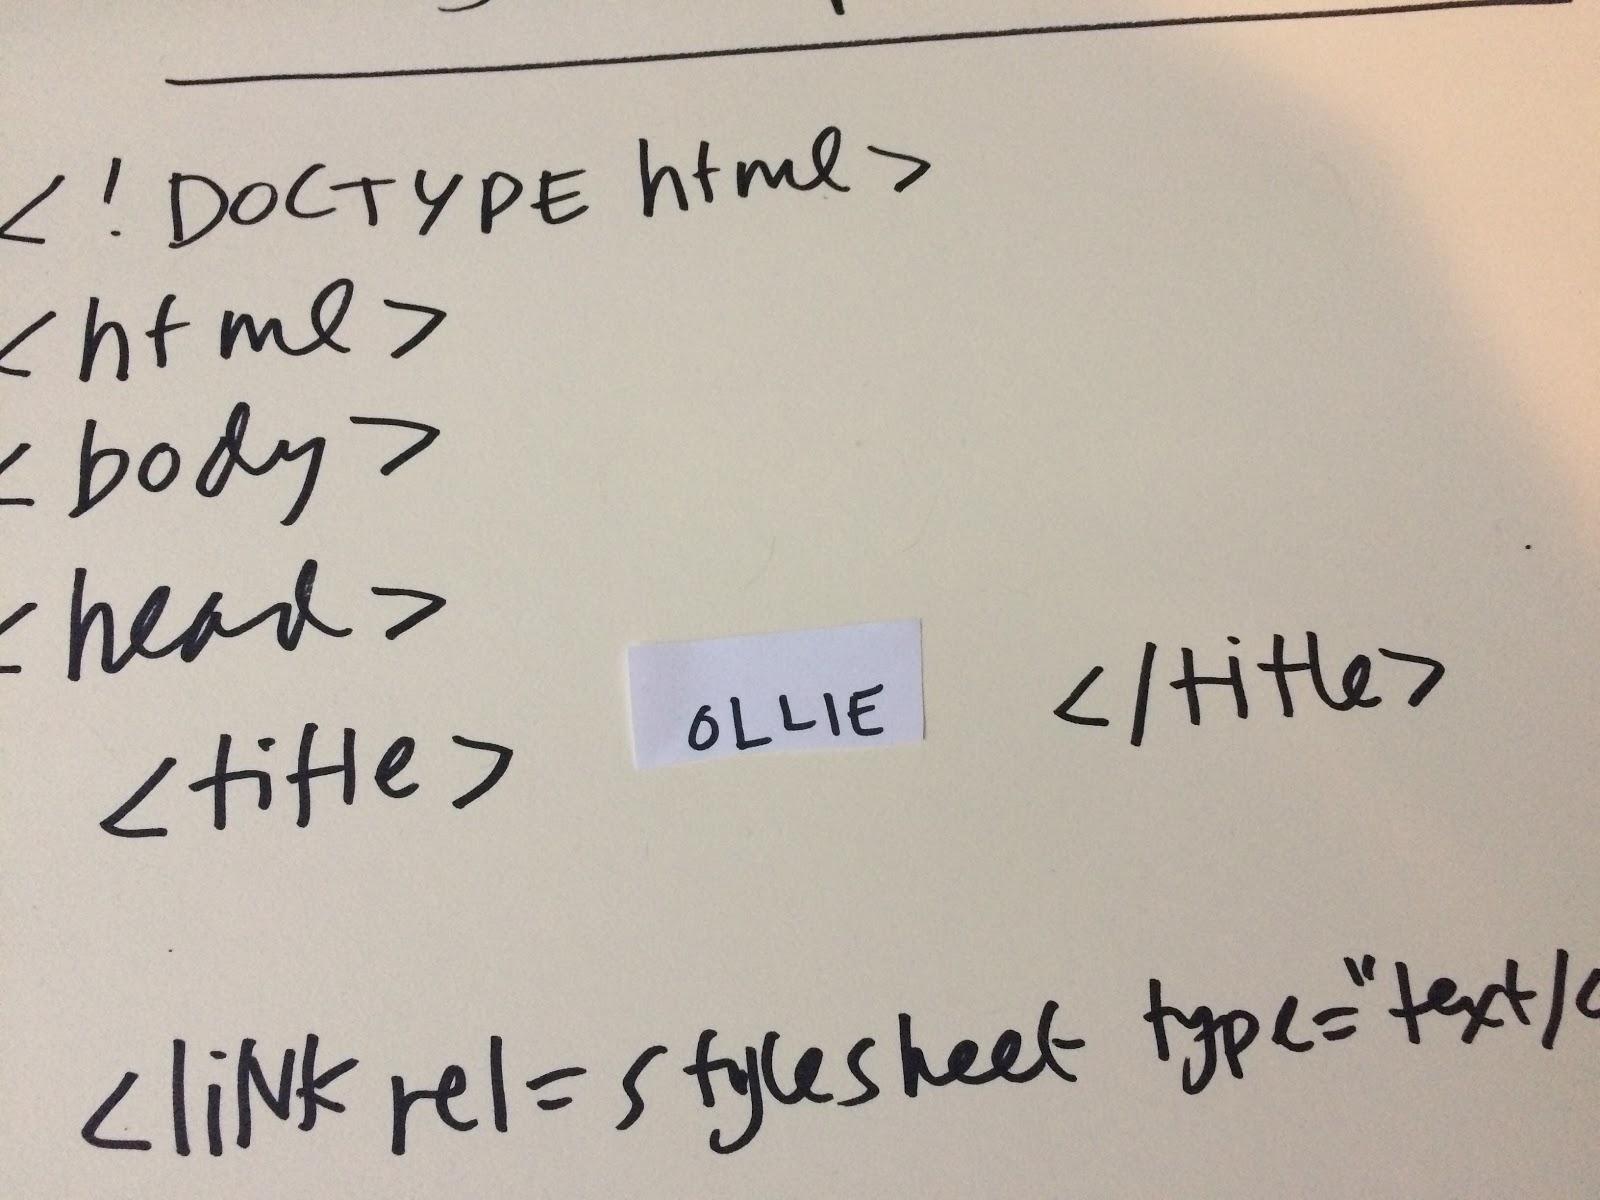 <!DOCTYPE html>
<html>
<body>
<head>
<title> OLLIE </title>
<liNk rel=stylesheet type="text/c